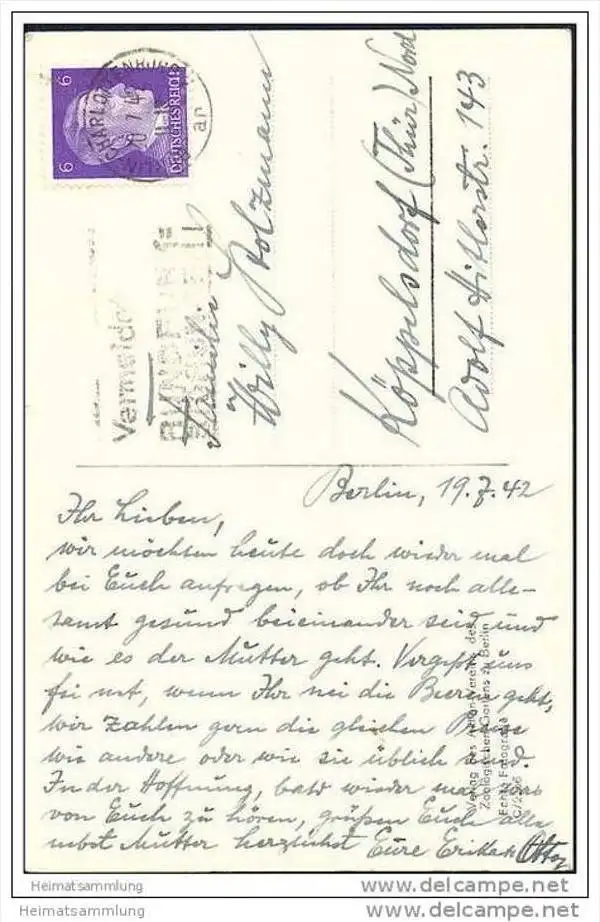 6
6
DEUTSCHES REICH
CHARLOTTENBURG
20.7.42
Vermeidet
RUNDFUNK
Familie
Willy Holzmann
Köppelsdorf (Thür) Nord
Adolf Hitlerstr. 143
Berlin, 19.7.42
Ihr Lieben,
wir möchten heute doch wieder mal
bei Euch anfragen, ob Ihr noch alle-
samt gesund beieinander seid und
wie es der Mutter geht. Vergeßt uns
fei net, wenn Ihr nei die Beeren geht,
wir zahlen gern die gleichen Preise
wie andere oder wie sie üblich sind.
In der Hoffnung, bald wieder mal was
von Euch zu hören, grüßen Euch alle
nebst Mutter herzlichst Eure Erika & Otto
Verlag des Aktien-Vereins des
Zoologischen Gartens zu Berlin
Echte Fotografie
Heimatsammlung
Heimatsammlung
www.delcampe.net
www.delcampe.net